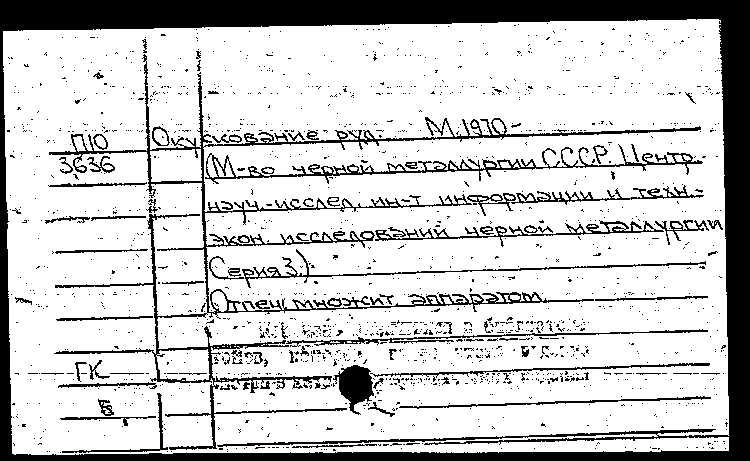 П10 Окускование руд. М, 1970-
3636 (М-во черной металлургии СССР. Центр.
науч.-исслед. ин-т информации и техн.-
экон. исследований черной металлургии
Серия 3.)
Отпеч. множит. аппаратом.
в библиотеке
томов,
ГК
Б